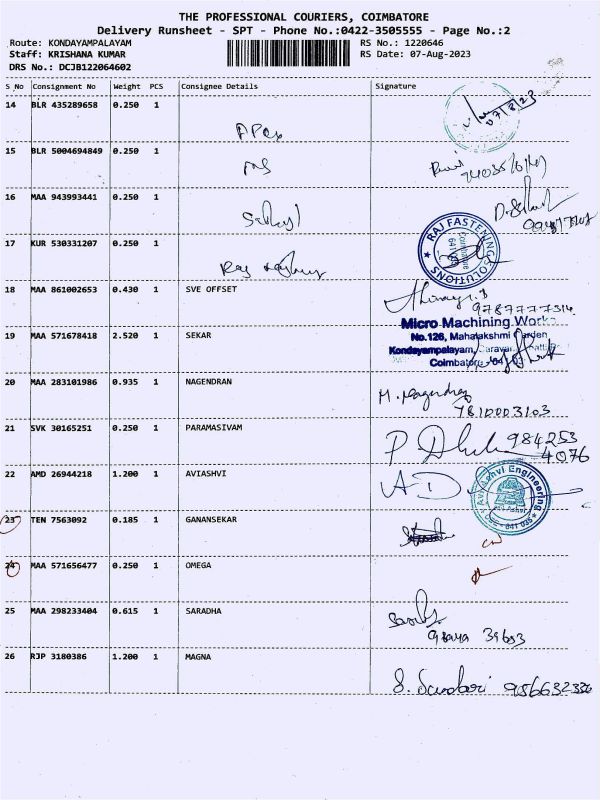 THE PROFESSIONAL COURIERS, COIMBATORE
Delivery Runsheet - SPT - Phone No.:0422-3505555 - Page No.:2
Route: KONDAYAMPALAYAM RS No.: 1220646
Staff: KRISHANA KUMAR RS Date: 07-Aug-2023
DRS No.: DCJB122064602
S No Consignment No Weight PCS Consignee Details Signature
14 BLR 435289658 0.250 1
07/8/23
15 BLR 5004694849 0.250 1
16 MAA 943993441 0.250 1
17 KUR 530331207 0.250 1
RAJ FASTENING SOLUTIONS
18 MAA 861002653 0.430 1 SVE OFFSET
9787777314
19 MAA 571678418 2.520 1 SEKAR
Micro Machining Works
No.126, Mahalakshmi Garden,
Kondayampalayam,
Coimbatore
20 MAA 283101986 0.935 1 NAGENDRAN
M. Nagendran
7810003103
21 SVK 30165251 0.250 1 PARAMASIVAM
984253
4076
22 AMD 26944218 1.200 1 AVIASHVI
Avi Ashvi Engineering
23 TEN 7563092 0.185 1 GANANSEKAR
24 MAA 571656477 0.250 1 OMEGA
25 MAA 298233404 0.615 1 SARADHA
26 RJP 3180386 1.200 1 MAGNA
S. Sundari 956632336